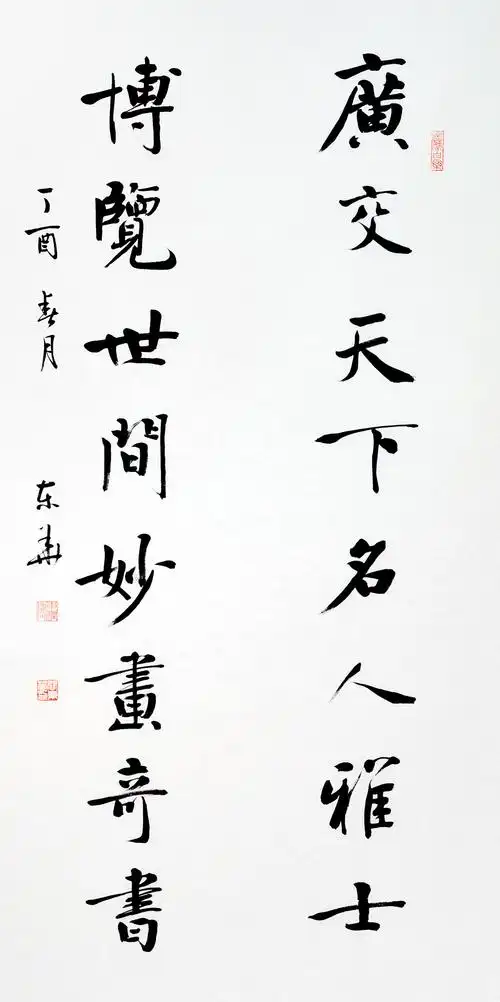 廣交天下名人雅士
博覽世間妙畫奇書
丁酉 春月
东华